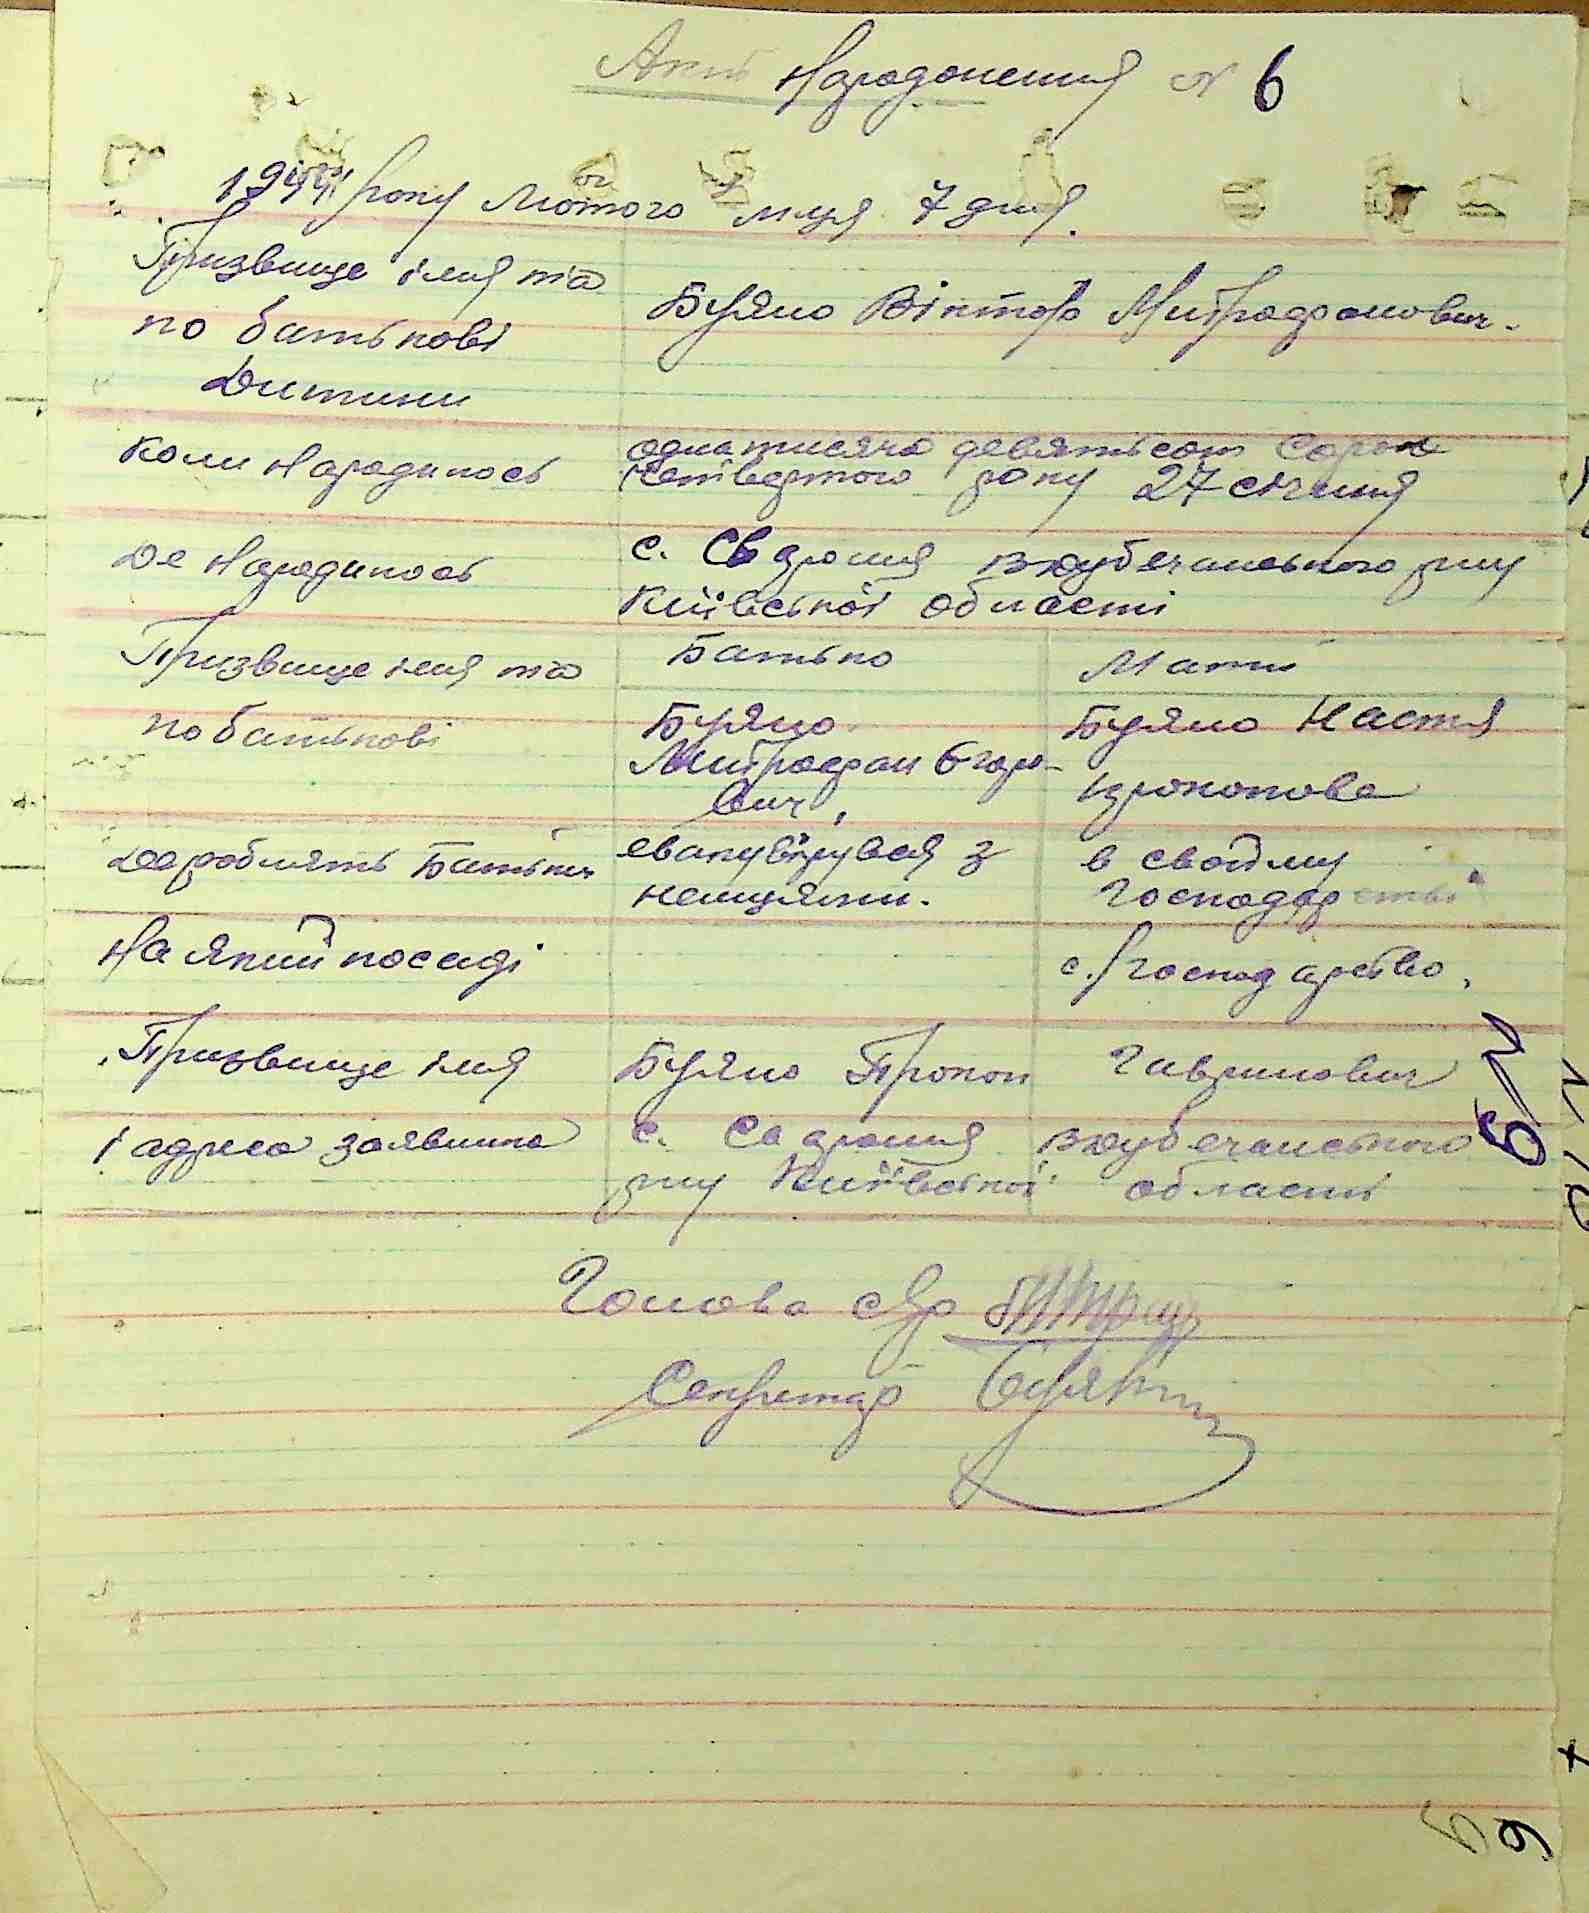 Акт Народження N 6
1944 року Лютого м-ця 7 дня.
Призвище імя та
по батькові
Дитини
Буяло Віктор Митрофонович.
Коли Народилось
одна тисяча девятьсот сорок
четвертого року 27 січня
Де Народилось
с. Сваромя р-ну
Київської області
Призвище імя та
по батькові
Батько
Мати
Буяло
Митрофан Єгоро-
вич,
Буяло Настя
Прокопова
Де роблять Батьки
евакуірувся з
немцями.
в своїму
Господарстві
На який посаді
с/господарство.
Призвище імя
і адреса заявника
Буяло Прокоп Гаврилович
с. Сваромя
р-ну Київської області
Голова с/р
Секретар
6